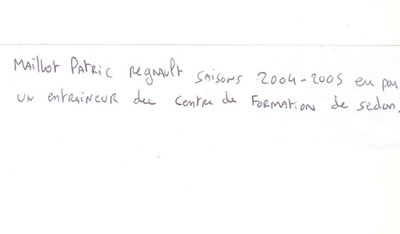 Maillot Patric Regnault saisons 2004-2005 eu par
un entraineur du Centre de Formation de Sedan.